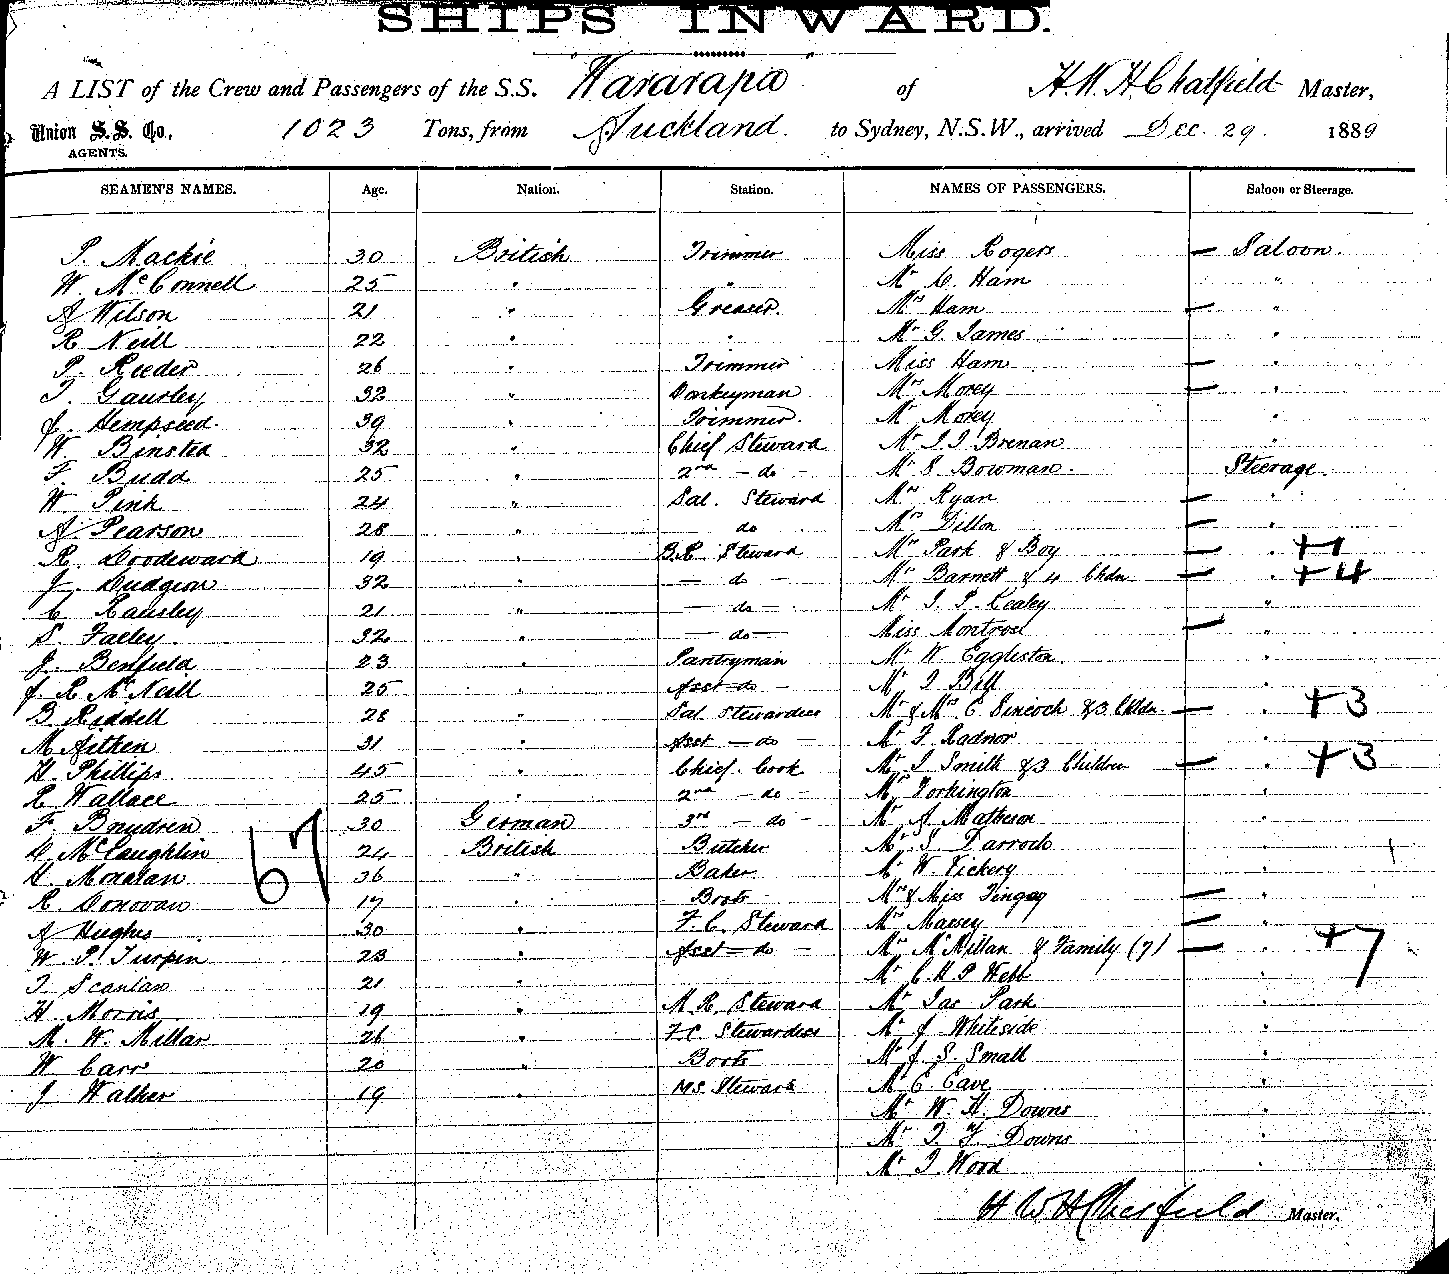 SHIPS INWARD.
A LIST of the Crew and Passengers of the S.S. Wararapa of H. W. H. Chatfield Master,
Union S.S. Co., 1023 Tons, from Auckland. to Sydney, N.S.W., arrived Dec. 29. 1889
AGENTS.
SEAMEN'S NAMES. Age. Nation. Station. NAMES OF PASSENGERS. Saloon or Steerage.
P. Mackie 30 British Trimmer Miss Rogers — Saloon.
W. McConnell 25 " " Mr C. Ham "
A Wilson 21 " Greaser. Mrs Ham — "
R Neill 22 " " Mr G. James "
P. Reeder 26 " Trimmer Miss Ham — "
T. 32 " Donkeyman Mrs Morey — "
J. Hempseed. 39 " Trimmer. Mr Morey "
W Binsted 32 " Chief Steward Mr J. J. Brenan "
F. Budd 25 " 2nd - do - Mr S. Bowman. Steerage.
W Pink 24 " Sal. Steward Mrs Ryan — "
A. Pearson 28 " do Mrs Dillon — "
R. Woodeward 19 " B.R. Steward Mrs Park & Boy — " +1
J. Dudgeon 32 " — do — Mrs Barnett & 4 Chdn — " +4
C. Rausley 21 " — do — Mr J. P. Kealey "
S. Falley 32 " — do — Miss Montrose — "
J. Benfield 23 " Pantryman Mr W Eggleston. "
J. R McNeill 25 " Asst do - Mr T Bell "
B. Riddell 28 " Sal. Stewardess Mr & Mrs E Sincock & 3 Chldn — " +3
M Aitken 31 " Asst - do - Mr T. Radnor "
H. Phillips. 45 " Chief. Cook Mr J Smith & 3 Children — " +3
R Wallace 25 " 2nd - do - Mr Workington "
F. 30 German 3rd - do - Mr A Matheson "
D. McLaughlin 24 British Butcher Mr S. Darroch "
H. 36 " Baker Mr W Vickery "
67
R Donovan 17 " Boots Mrs & Miss Tingey — "
A Hughes 30 " F. C. Steward Mrs Massey — "
W P. Turpin 23 " Asst - do - Mrs McMillan & Family (7) — " +7
T Scanlan 21 " Mr C H P Webb "
H. Morris 19 " M. R. Steward Mr Jas Park "
M. W. Millar 26 " F.C. Stewardess Mr J Whiteside "
W Carr 20 " Boots Mr J. S. Small "
J Walker 19 " M.S. Steward Mr E Eave "
Mr W. H. Downs "
Mr T. F. Downs "
Mr T Wood "
H W H Chatfield Master.